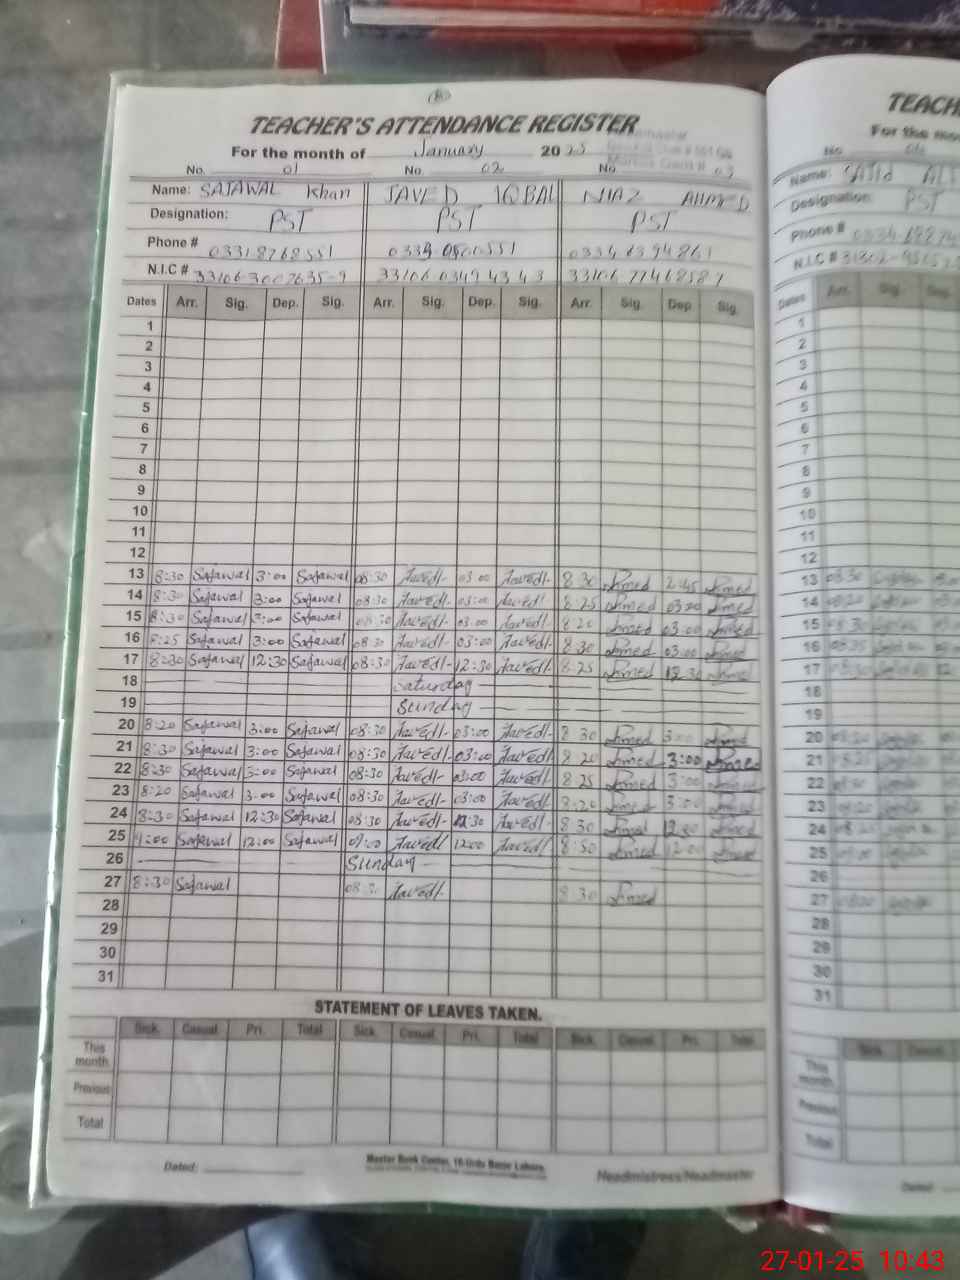 TEACHER'S ATTENDANCE REGISTER
For the month of January 2025
No. 01 No. 02 No. 03
Name: SAJAWAL Khan JAVED IQBAL NIAZ AHMED
Designation: PST PST PST
Phone # 03318768551 0334 6394861
N.I.C #
Dates Arr. Sig. Dep. Sig. Arr. Sig. Dep. Sig. Arr. Sig. Dep Sig.
1
2
3
4
5
6
7
8
9
10
11
12
13 8:30 Sajawal 3:00 Sajawal 08:30 Javed 03 00 Javed 8 30 Ahmed 2:45 Ahmed
14 8:30 Sajawal 3:00 Sajawal 08:30 Javed 03:00 Javed 8:25 Ahmed 03:00 Ahmed
15 8:30 Sajawal 3:00 Sajawal 08:30 Javed 03:00 Javed 8 20 Ahmed 03:00 Ahmed
16 8:25 Sajawal 3:00 Sajawal 08:30 Javed 03:00 Javed 8 30 Ahmed 03:00 Ahmed
17 8:30 Sajawal 12:30 Sajawal 08:30 Javed 12:30 Javed 8:25 Ahmed 12 30 Ahmed
18 Saturday
19 Sunday
20 8:20 Sajawal 3:00 Sajawal 08:30 Javed 03:00 Javed 8 30 Ahmed 3:00 Ahmed
21 8:30 Sajawal 3:00 Sajawal 08:30 Javed 03:00 Javed 8 20 Ahmed 3:00 Ahmed
22 8:30 Sajawal 3:00 Sajawal 08:30 Javed 03:00 Javed 8 25 Ahmed 3:00 Ahmed
23 8:20 Sajawal 3:00 Sajawal 08:30 Javed 03:00 Javed 8:20 Ahmed 3:00 Ahmed
24 8:30 Sajawal 12:30 Sajawal 08:30 Javed 12:30 Javed 8 30 Ahmed 12:30 Ahmed
25 Sajawal 12:00 Sajawal 09:00 Javed 12:00 Javed 8:50 Ahmed 12:00 Ahmed
26 Sunday
27 8:30 Sajawal 08:30 Javed 8 30 Ahmed
28
29
30
31
STATEMENT OF LEAVES TAKEN.
Sick. Casual. Pri. Total Sick. Casual. Pri. Total Sick. Casual. Pri. Total
This month.
Previous
Total
Dated:
Master Book Center, 16-Urdu Bazar Lahore.
Headmistress/Headmaster
TEACH
For the mo
No
Name: SAJId ALI
Designation: PST
Phone #
N.I.C #
Dates Arr. Sig. Dep
1
2
3
4
5
6
7
8
9
10
11
12
13 08:30
14 08:20
15 08:30
16 08:25
17 08:30
18
19
20 08:20
21 8:25
22
23 08:20
24 08:20
25
26
27 08:00
28
29
30
31
Sick. Casual.
This month.
Previous
Total
Dated:
27-01-25 10:43